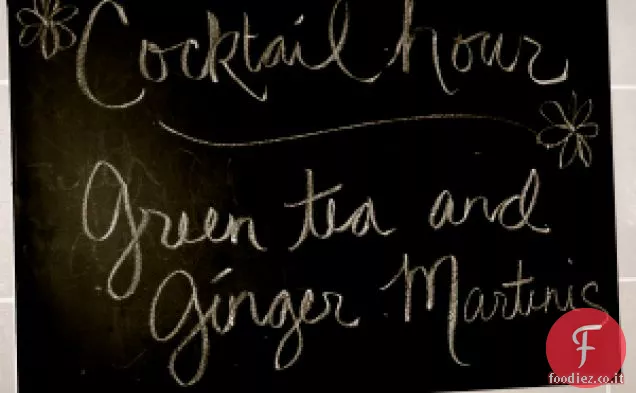 Cocktail hour
Green tea and
Ginger Martinis
F
foodiez.co.it